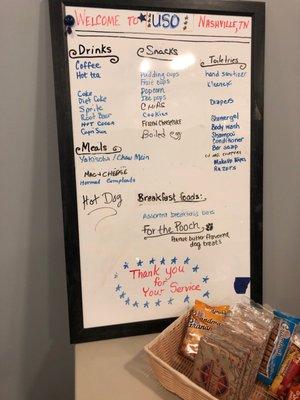 Welcome to USO Nashville, TN
Drinks
Coffee
Hot tea
Coke
Diet Coke
Sprite
Root Beer
Hot Cocoa
Capri Sun
Meals
Yakisoba / Chow Mein
Mac n Cheese
Hormel Compleats
Hot Dog
Snacks
Pudding cups
Fruit cups
Popcorn
Ice pops
Chips
Cookies
Boiled egg
Breakfast foods:
Assorted breakfast bars
For the Pooch
Peanut butter flavored
dog treats
Toiletries
hand sanitizer
Kleenex
Diapers
Shower gel
Body wash
Shampoo
Conditioner
Bar soap
Makeup Wipes
Razors
Thank you
for
Your Service